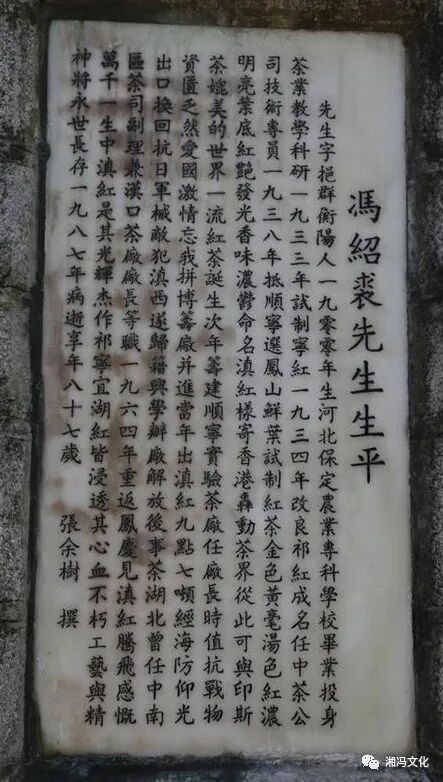 馮紹裘先生生平
先生字挹群衡陽人一九零零年生河北保定農業專科學校畢業投身
茶業教學科研一九三三年試制寧紅一九三四年改良祁紅成名任中茶公
司技術專員一九三八年抵順寧選鳳山鮮葉試制紅茶金色黃毫湯色紅濃
明亮葉底紅艷發光香味濃鬱命名滇紅樣寄香港轟動茶界從此可與印斯
茶媲美的世界一流紅茶誕生次年籌建順寧實驗茶廠任廠長時值抗戰物
資匱乏然愛國激情忘我拼博籌廠并進當年出滇紅九點七噸經海防仰光
出口換回抗日軍械敵犯滇西遂歸籍興學辦廠解放後事茶湖北曾任中南
區茶司副理兼漢口茶廠廠長等職一九六四年重返鳳慶見滇紅騰飛感慨
萬千一生中滇紅是其光輝杰作祁寧宜湖紅皆浸透其心血不朽工藝與精
神將永世長存一九八七年病逝享年八十七歲 張余樹 撰
湘冯文化